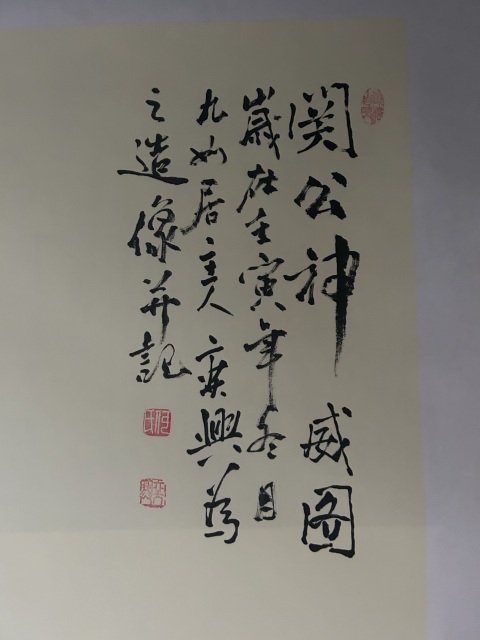 関公神威图
歲在壬寅年冬日
九如居主人興為
之造像并記